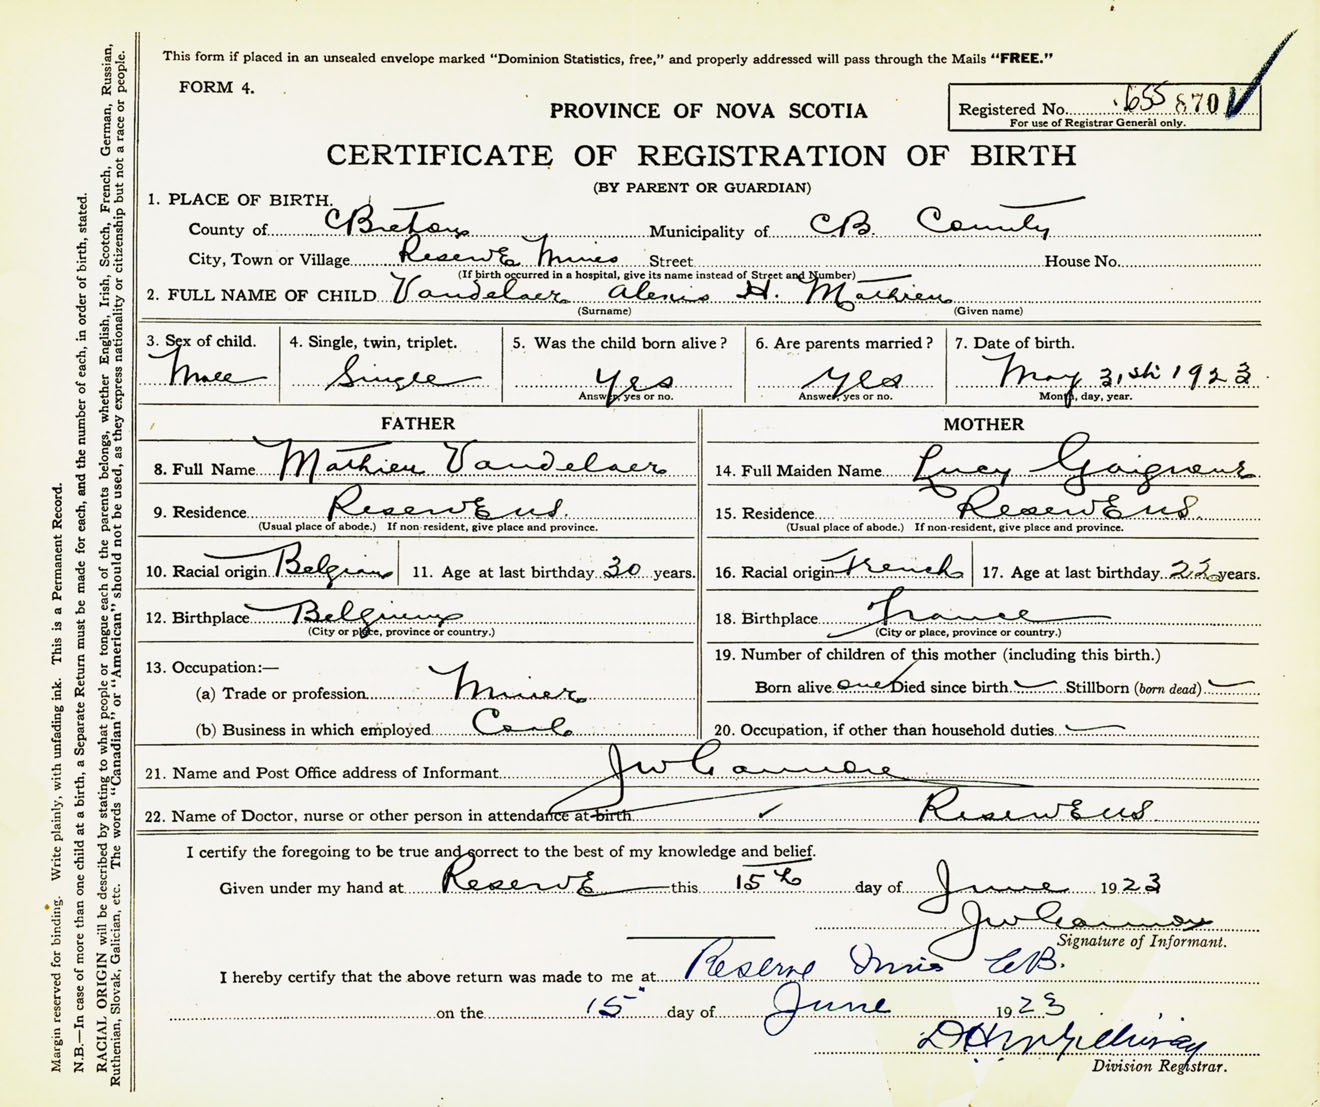 This form if placed in an unsealed envelope marked “Dominion Statistics, free,” and properly addressed will pass through the Mails “FREE.”
FORM 4.
PROVINCE OF NOVA SCOTIA
Registered No. 655 870
For use of Registrar General only.
CERTIFICATE OF REGISTRATION OF BIRTH
(BY PARENT OR GUARDIAN)
1. PLACE OF BIRTH.
County of C Breton Municipality of C B. County
City, Town or Village Reserve Mines Street House No.
(If birth occurred in a hospital, give its name instead of Street and Number)
2. FULL NAME OF CHILD Vandelaer Alexis H. Mathieu
(Surname) (Given name)
3. Sex of child. 4. Single, twin, triplet. 5. Was the child born alive? 6. Are parents married? 7. Date of birth.
Male Single Yes Yes May 31st 1923
Answer, yes or no. Answer, yes or no. Month, day, year.
FATHER MOTHER
8. Full Name Mathieu Vandelaer 14. Full Maiden Name Lucy
9. Residence Reserve 15. Residence Reserve
(Usual place of abode.) If non-resident, give place and province. (Usual place of abode.) If non-resident, give place and province.
10. Racial origin Belgian 11. Age at last birthday 30 years. 16. Racial origin French 17. Age at last birthday 22 years.
12. Birthplace Belgium 18. Birthplace France
(City or place, province or country.) (City or place, province or country.)
13. Occupation:— 19. Number of children of this mother (including this birth.)
(a) Trade or profession Miner Born alive one Died since birth Stillborn (born dead)
(b) Business in which employed Coal 20. Occupation, if other than household duties
21. Name and Post Office address of Informant J W
22. Name of Doctor, nurse or other person in attendance at birth Reserve
I certify the foregoing to be true and correct to the best of my knowledge and belief.
Given under my hand at Reserve this 15th day of June 1923
J W
Signature of Informant.
I hereby certify that the above return was made to me at Reserve Mines C.B.
on the 15" day of June 1923
Division Registrar.
Margin reserved for binding. Write plainly, with unfading ink. This is a Permanent Record.
N.B.—In case of more than one child at a birth, a Separate Return must be made for each, and the number of each, in order of birth, stated.
RACIAL ORIGIN will be described by stating to what people or tongue each of the parents belongs, whether English, Irish, Scotch, French, German, Russian,
Ruthenian, Slovak, Galician, etc. The words “Canadian” or “American” should not be used, as they express nationality or citizenship but not a race or people.